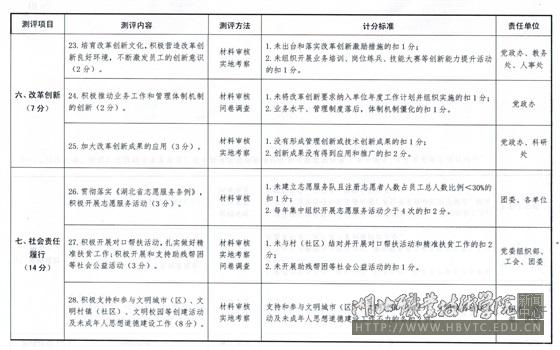 测评项目 测评内容 测评方法 计分标准 责任单位
六、改革创新
(7分)
23.培育改革创新文化,积极营造改革创
新良好环境,不断激发员工的创新意识
(2分)。
材料审核
实地考察
1.未出台和落实改革创新激励措施的扣1分;
2.未组织开展业务培训、岗位练兵、技能大赛等创新能力提升活动
的扣1分。
党政办、教务
处、人事处
24.积极推动业务工作和管理体制机制
的创新(2分)。
材料审核
问卷调查
1.未将改革创新要求纳入单位年度工作计划并组织实施的扣1分;
2.业务水平、管理制度落后,体制机制僵化的扣1分。
党政办
25.加大改革创新成果的应用(3分)。
材料审核
实地考察
1.没有形成管理创新或技术创新成果的扣1分;
2.创新成果没有得到应用和推广的扣2分。
党政办、科研
处
七、社会责任
履行
(14分)
26.贯彻落实《湖北省志愿服务条例》,
积极开展志愿服务活动(3分)。
材料审核
实地考察
1.未建立志愿服务队且注册志愿者人数占员工总人数比例<30%的
扣1分;
2.每年集中组织开展志愿服务活动少于4次的扣2分。
团委、各单位
27.积极开展对口帮扶活动,扎实做好精
准扶贫工作;积极开展和支持助残帮困
等社会公益活动(3分)。
材料审核
实地考察
问卷调查
1.未与村(社区)结对并开展对口帮扶活动和精准扶贫工作的扣2
分;
2.未开展助残帮困等社会公益活动的扣1分。
党委组织部、
工会、团委
28.积极支持和参与文明城市(区)、文
明村镇(社区)、文明校园等创建活动
及未成年人思想道德建设工作(8分)。
材料审核
实地考察
支持和参与文明城市(区)、文明村镇(社区)
动及未成年人思想道德建设工作
湖北职业技术学院
新闻
中心
HTTP://WWW.HBVTC.EDU.CN